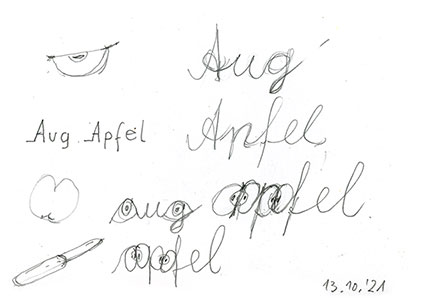 Aug'
Aug Apfel Apfel
aug apfel
apfel
13.10.'21